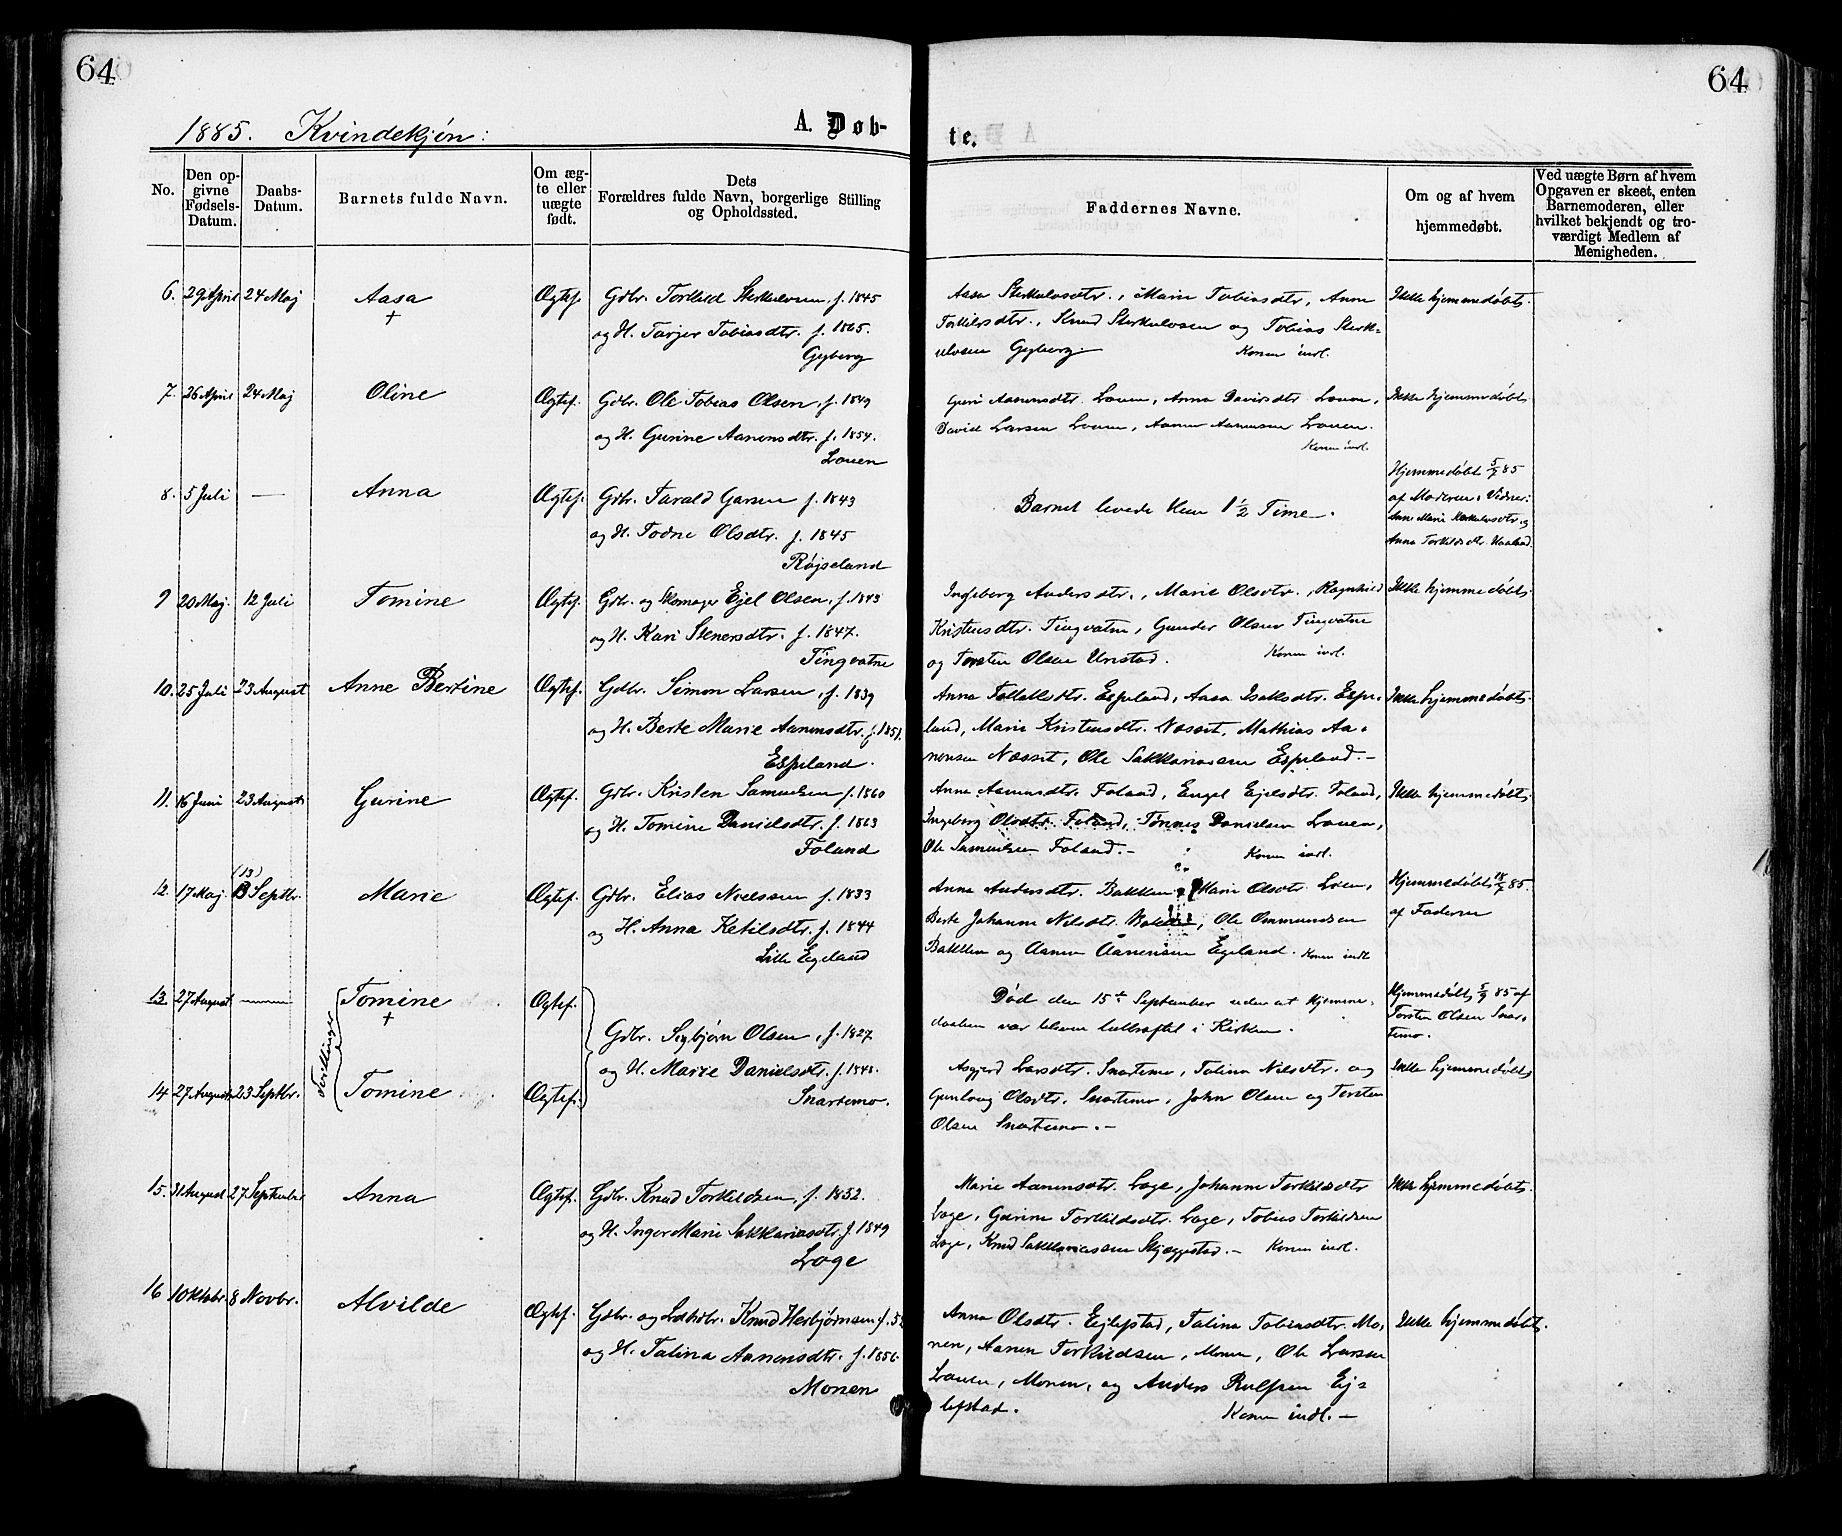 64
64
1885. Kvindekjön:
A. Døb-
te.
No.
Den op-
givne
Fødsels-
Datum.
Daabs-
Datum.
Barnets fulde Navn.
Om æg-
te eller
uægte
født.
Dets
Forældres fulde Navn, borgerlige Stilling
og Opholdssted.
Faddernes Navne.
Om og af hvem
hjemmedøbt.
Ved uægte Børn af hvem
Opgaven er skeet, enten
Barnemoderen, eller
hvilket bekjendt og tro-
værdigt Medlem af
Menigheden.
6. 29 April 24 Maj Aasa Ægtef. Gdbr. Torkild Sterkulvsen, f. 1845
+
og H. Tarjer Tobiasdtr. f. 1865.
Gyberg
Aasa Sterkulvsdtr., Marie Tobiasdtr, Anne
Torkildsdtr., Knud Sterkulvsen og Tobias Sterk-
ulvsen Gyberg. Konen indl.
Ikke hjemmedøbt.
7. 26 April 24 Maj Oline Ægtef. Gdbr. Ole Tobias Olsen, f. 1849
og H. Gurine Aanensdtr. f. 1854.
Louen
Guri Aanensdtr. Louen, Anna Davidsdtr Louen,
David Larsen Louen, Aanen Aanensen Louen.
Konen indl.
Ikke hjemmedøbt
8. 5 Juli — Anna Ægtef. Gdbr. Tarald Garsen f. 1843
og H. Todne Olsdtr. f. 1845
Røjseland
Barnet levede kun 1 1/2 Time.
Hjemmedøbt 5/7 85
af Moderen. Vidner:
Anne Marie
Anna Torkildsdtr.
9 20 Maj. 12 Juli Tomine Ægtef. Gdbr. og Skomager Ejel Olsen, f. 1843
og H. Kari Stenersdtr. f. 1847.
Tingvatne
Ingeborg Andersdtr., Marie Olsdtr., Ragnhild
Kristensdtr. Tingvatne, Gunder Olsen Tingvatne
og Torsten Olsen Unstad. Konen indl.
Ikke hjemmedøbt.
10. 25 Juli 23 August Anne Bertine Ægtef. Gdbr. Simon Larsen, f. 1839
og H. Berte Marie Aanensdtr. f. 1851.
Espeland.
Anna Tollaksdtr. Espeland, Aasa Isaksdtr. Espe-
land, Marie Kristensdtr. Næset, Mathias Aa-
nensen Næset, Ole Sakkariassen Espeland.—
Ikke hjemmedøbt.
11. 16 Juni 23 August Gurine Ægtef. Gdbr. Kristen Samuelsen f. 1860
og H. Tomine Danielsdtr. f. 1863
Foland
Anne Aanensdtr. Foland, Engel Ejelsdtr. Foland,
Ingeborg Olsdtr. Foland, Tønnes Danielsen Louen,
Ole Samuelsen Foland.— Konen indl.
Ikke hjemmedøbt.
(13)
12. 17 Maj. 13 Septbr. Marie Ægtef. Gdbr. Elias Nielssen f. 1833
og H. Anna Ketilsdtr. f. 1844
Lille Egeland
Anna Andersdtr. Bakken, Marie Olsdtr. Loen,
Berte Johanne Nilsdtr. Bakken, Ole Ommundsen
Bakken og Aanen Aanensen Egeland. Konen indl
Hjemmedøbt 18/5 85.
af Faderen
13. 27 August — Tomine Ægtef.
+
Tvillinger
Gdbr. Sigbjørn Olsen, f. 1827
og H. Marie Danielsdtr. f. 1848.
Snartemo.
Død den 15de September uden at Hjemme-
daaben var bleven bekræftet i Kirken.
Hjemmedøbt 5/9 85 af
Torsten Olsen Snar-
temo.
14 27 August 23 Septbr. Tomine Ægtef.
Asgjerd Larsdtr. Snartemo, Talina Nilsdtr. og
Gunlaug Olsdtr. Snartemo, John Olsen og Torsten
Olsen Snartemo.—
Ikke hjemmedøbt
15. 31 August 27 September Anna Ægtef. Gdbr. Knud Torkildsen, f. 1852.
og H. Inger Marie Sakkariasdtr. f. 1849
Loge
Marie Aanensdtr. Loge, Johanne Torkildsdtr
Loge, Gurine Torkildsdtr. Loge, Tobias Torkildsen
Loge, Knud Sakkariassen Skjeggestad.— Konen indl.
Ikke hjemmedøbt.
16 1 Oktobr. 8 Novbr. Alvilde Ægtef. Gdbr. og Ledsbr. Knud Herbjørnsen f. 5
og H. Talina Aanensdtr. f. 1856.
Monen
Anna Olsdtr. Ejlefstad, Talina Tobiasdtr. Mo-
nen, Aanen Torkildsen, Monen, Ole Larsen
Louen, Monen, og Anders Rolfsen Ej-
lefstad. Konen indl.—
Ikke hjemmedøbt.